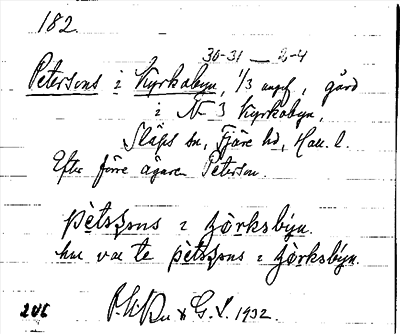 182.
30-31 — 2-4
Petersons i Kyrkobyn, 1/3 angef, gård
i No 3 Kyrkobyn,
Släps sn, Fjäre hd, Hall. l.
Efter förre ägaren Peterson.
pètssons i ɡö̀rksbýn.
hu va te pètssons i ɡö̀rksbýn.
206 & G. L. 1932.